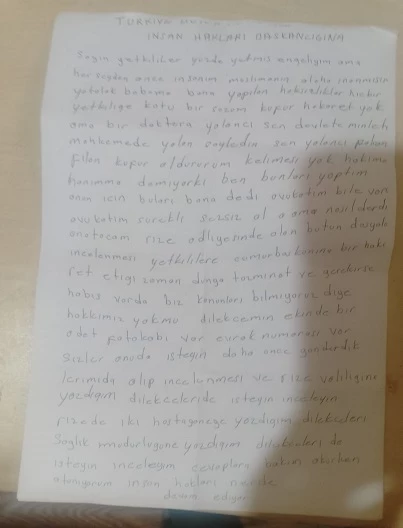 TÜRKİYE
İNSAN HAKLARI BAŞKANLIĞINA
Sayın yetkililer yüzde yetmiş engelliyim ama
herşeyden önce insanım müslümanım alaha inanmışım
yatalak babama bana yapılan haksızlıklar hiçbir
yetkiliye kötü bir sözüm küfür hakaret yok
ama bir doktora yalancı sen devlete
mahkemede yalan söyledin sen yalancı
filan küfür öldürürüm kelimesi yok hakime
hanımma demiyorki ben bunları yaptım
onun için bunları bana dedi avukatım bile var
avukatım sürekli sessiz ol a ama nasıl derdi
anatacam rize adliyesinde alan bütün dosyala
incelenmesi yetkililere cumurbaskanıma bir haki
ret etiği zaman dünya tazminat ve gerekirse
habis varda biz kanunları bilmiyoruz diye
hakkımız yokmu dilekcemin ekinde bir
adet fotokobi var evrak numarası var
sizler onuda isteyin daha önce gönderdik
lerimida alıp incelenmesi ve rize valiliğine
yazdığım dilekceleride isteyin inceleyin
rizede iki hastaneye yazdığım dilekceleri
Sağlık müdürlüğüne yazdığım dilekceleri de
isteyin inceleyin cevaplara bakın okurken
insan hakları nerede
devam ediyor